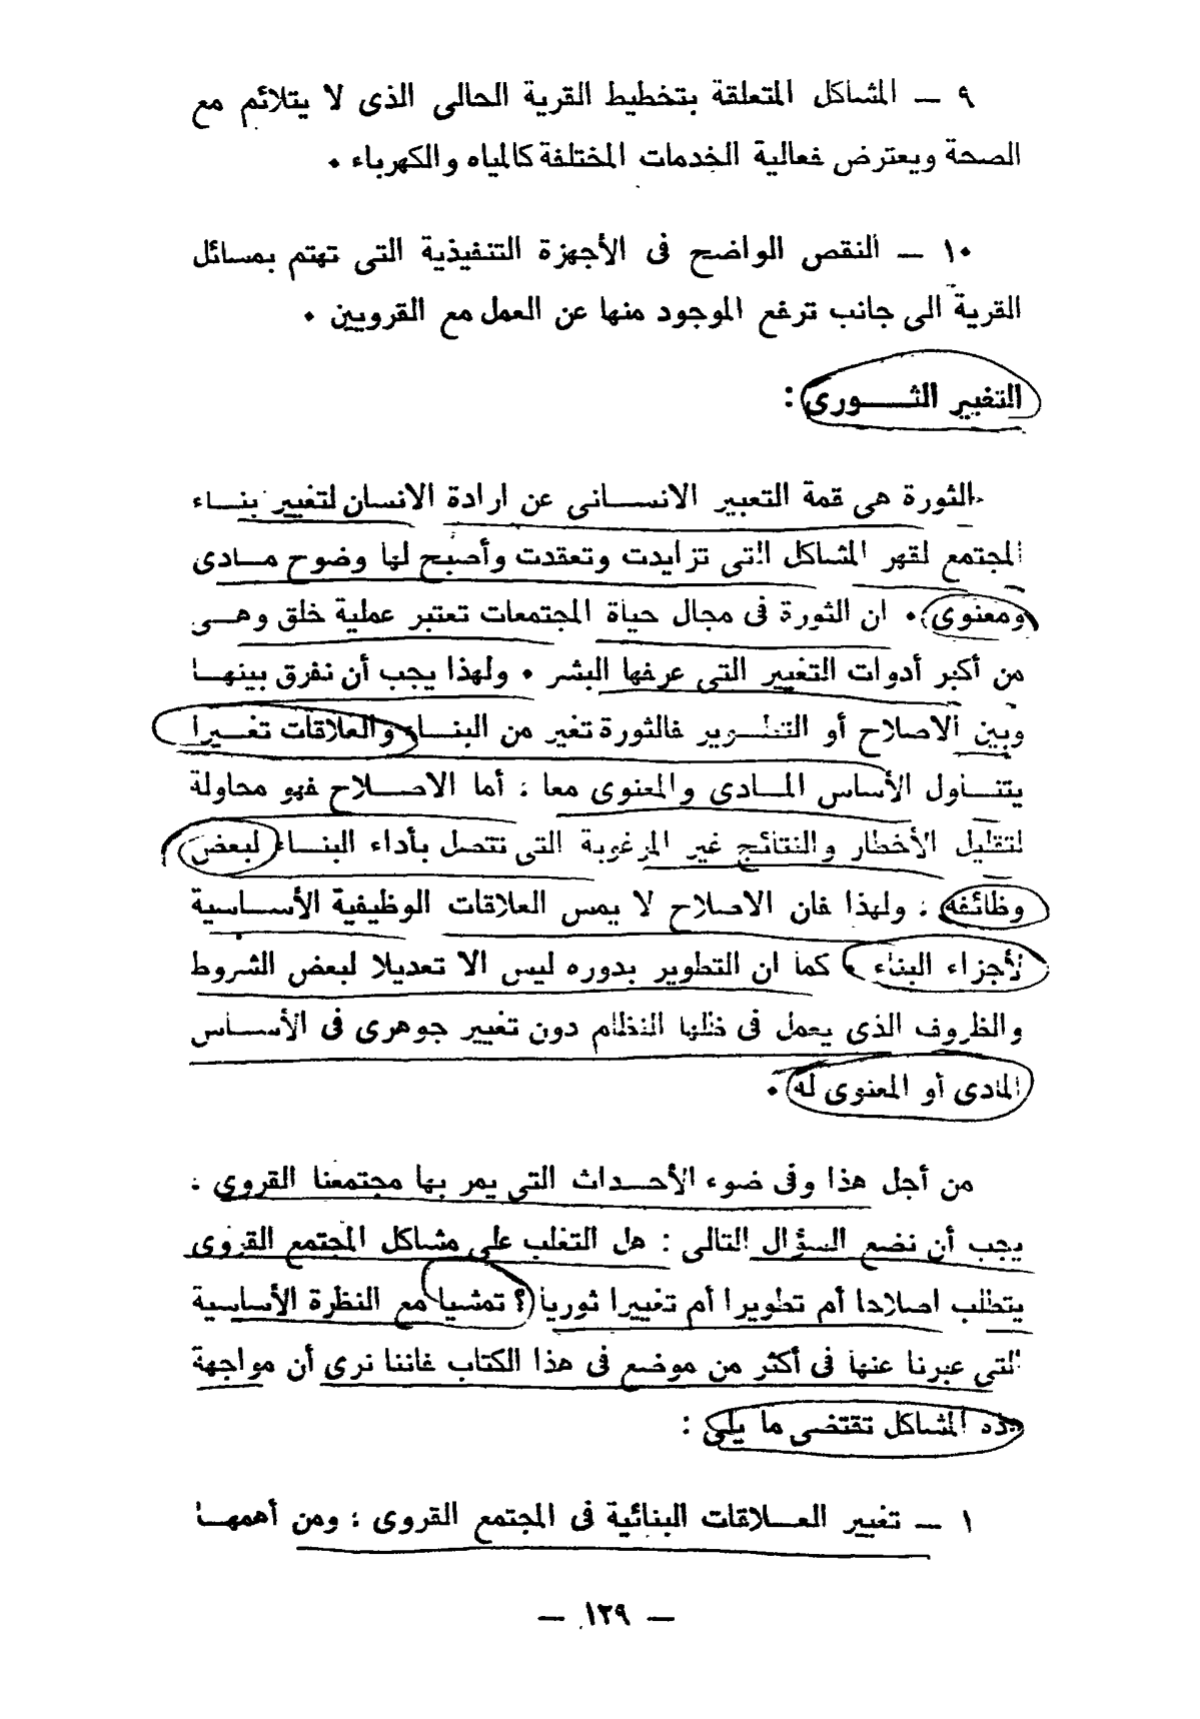 ٩ ــ المشاكل المتعلقة بتخطيط القرية الحالى الذى لا يتلائم مع
الصحة ويعترض فعالية الخدمات المختلفة كالمياه والكهرباء ٠
١٠ ــ النقص الواضح فى الأجهزة التنفيذية التى تهتم بمسائل
القرية الى جانب ترفع الموجود منها عن العمل مع القرويين ٠
التغيير الثـــورى :
الثورة هى قمة التعبير الانســانى عن ارادة الانسان لتغيير بنــاء
المجتمع لقهر المشاكل التى تزايدت وتعقدت وأصبح لها وضوح مــادى
ومعنوى ٠ ان الثورة فى مجال حياة المجتمعات تعتبر عملية خلق وهــى
من أكبر أدوات التغيير التى عرفها البشر ٠ ولهذا يجب أن نفرق بينهــا
وبين الاصلاح أو التطــوير فالثورة تغير من البنــاء والعلاقات تغــيرا
يتنــاول الأساس المــادى والمعنوى معا ؛ أما الاصــلاح فهو محاولة
لتقليل الأخطار والنتائج غير المرغوبة التى تتصل بأداء البنــاء لبعض
وظائفه ؛ ولهذا فان الاصلاح لا يمس العلاقات الوظيفية الأســاسية
لأجزاء البناء ٠ كما ان التطوير بدوره ليس الا تعديلا لبعض الشروط
والظروف الذى يعمل فى ظلها النظام دون تغيير جوهرى فى الأســاس
المادى أو المعنوى له ٠
من أجل هذا وفى ضوء الأحــداث التى يمر بها مجتمعنا القروى ؛
يجب أن نضع السؤال التالى : هل التغلب على مشاكل المجتمع القروى
يتطلب اصلاحا أم تطويرا أم تغييرا ثوريا ؟ تمشيا مع النظرة الأساسية
التى عبرنا عنها فى أكثر من موضع فى هذا الكتاب فاننا نرى أن مواجهة
هذه المشاكل تقتضى ما يلى :
١ ــ تغيير العــلاقات البنائية فى المجتمع القروى ؛ ومن أهمهــا
ــ ١٢٩ ــ